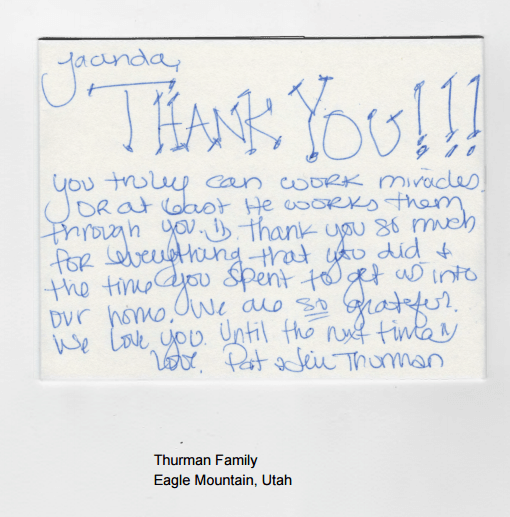 Jacinda,
THANK YOU!!!
you truley can WORK miracles
OR at least He WORKS them
through you. :) Thank you so much
for everything that you did &
the time you spent to get us into
our home. We are so grateful.
We love you. Until the next time
Love, Pat & Thurman
Thurman Family
Eagle Mountain, Utah